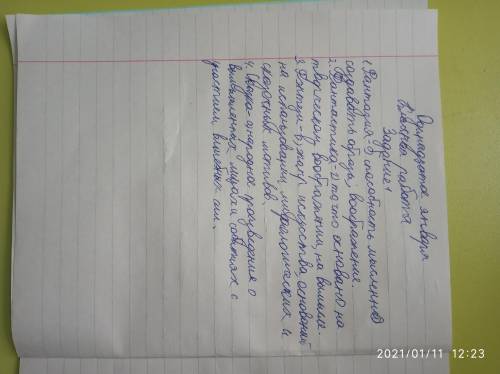 Одинадцята января
Класна работа
Задание 1
1. Фантазия - б) способность мысленно
создавать образы, воображение.
2. Фантастика - г) то что основано на
творческом воображении, на вымысле.
3. Фэнтези - в) жанр искусства, оснований
на использовании мифологических и
сказочных мотивов.
4. Сказка - народное произведение о
вымышленных людях и событиях с
участием, волшебных сил.
2021/01/11 12:23